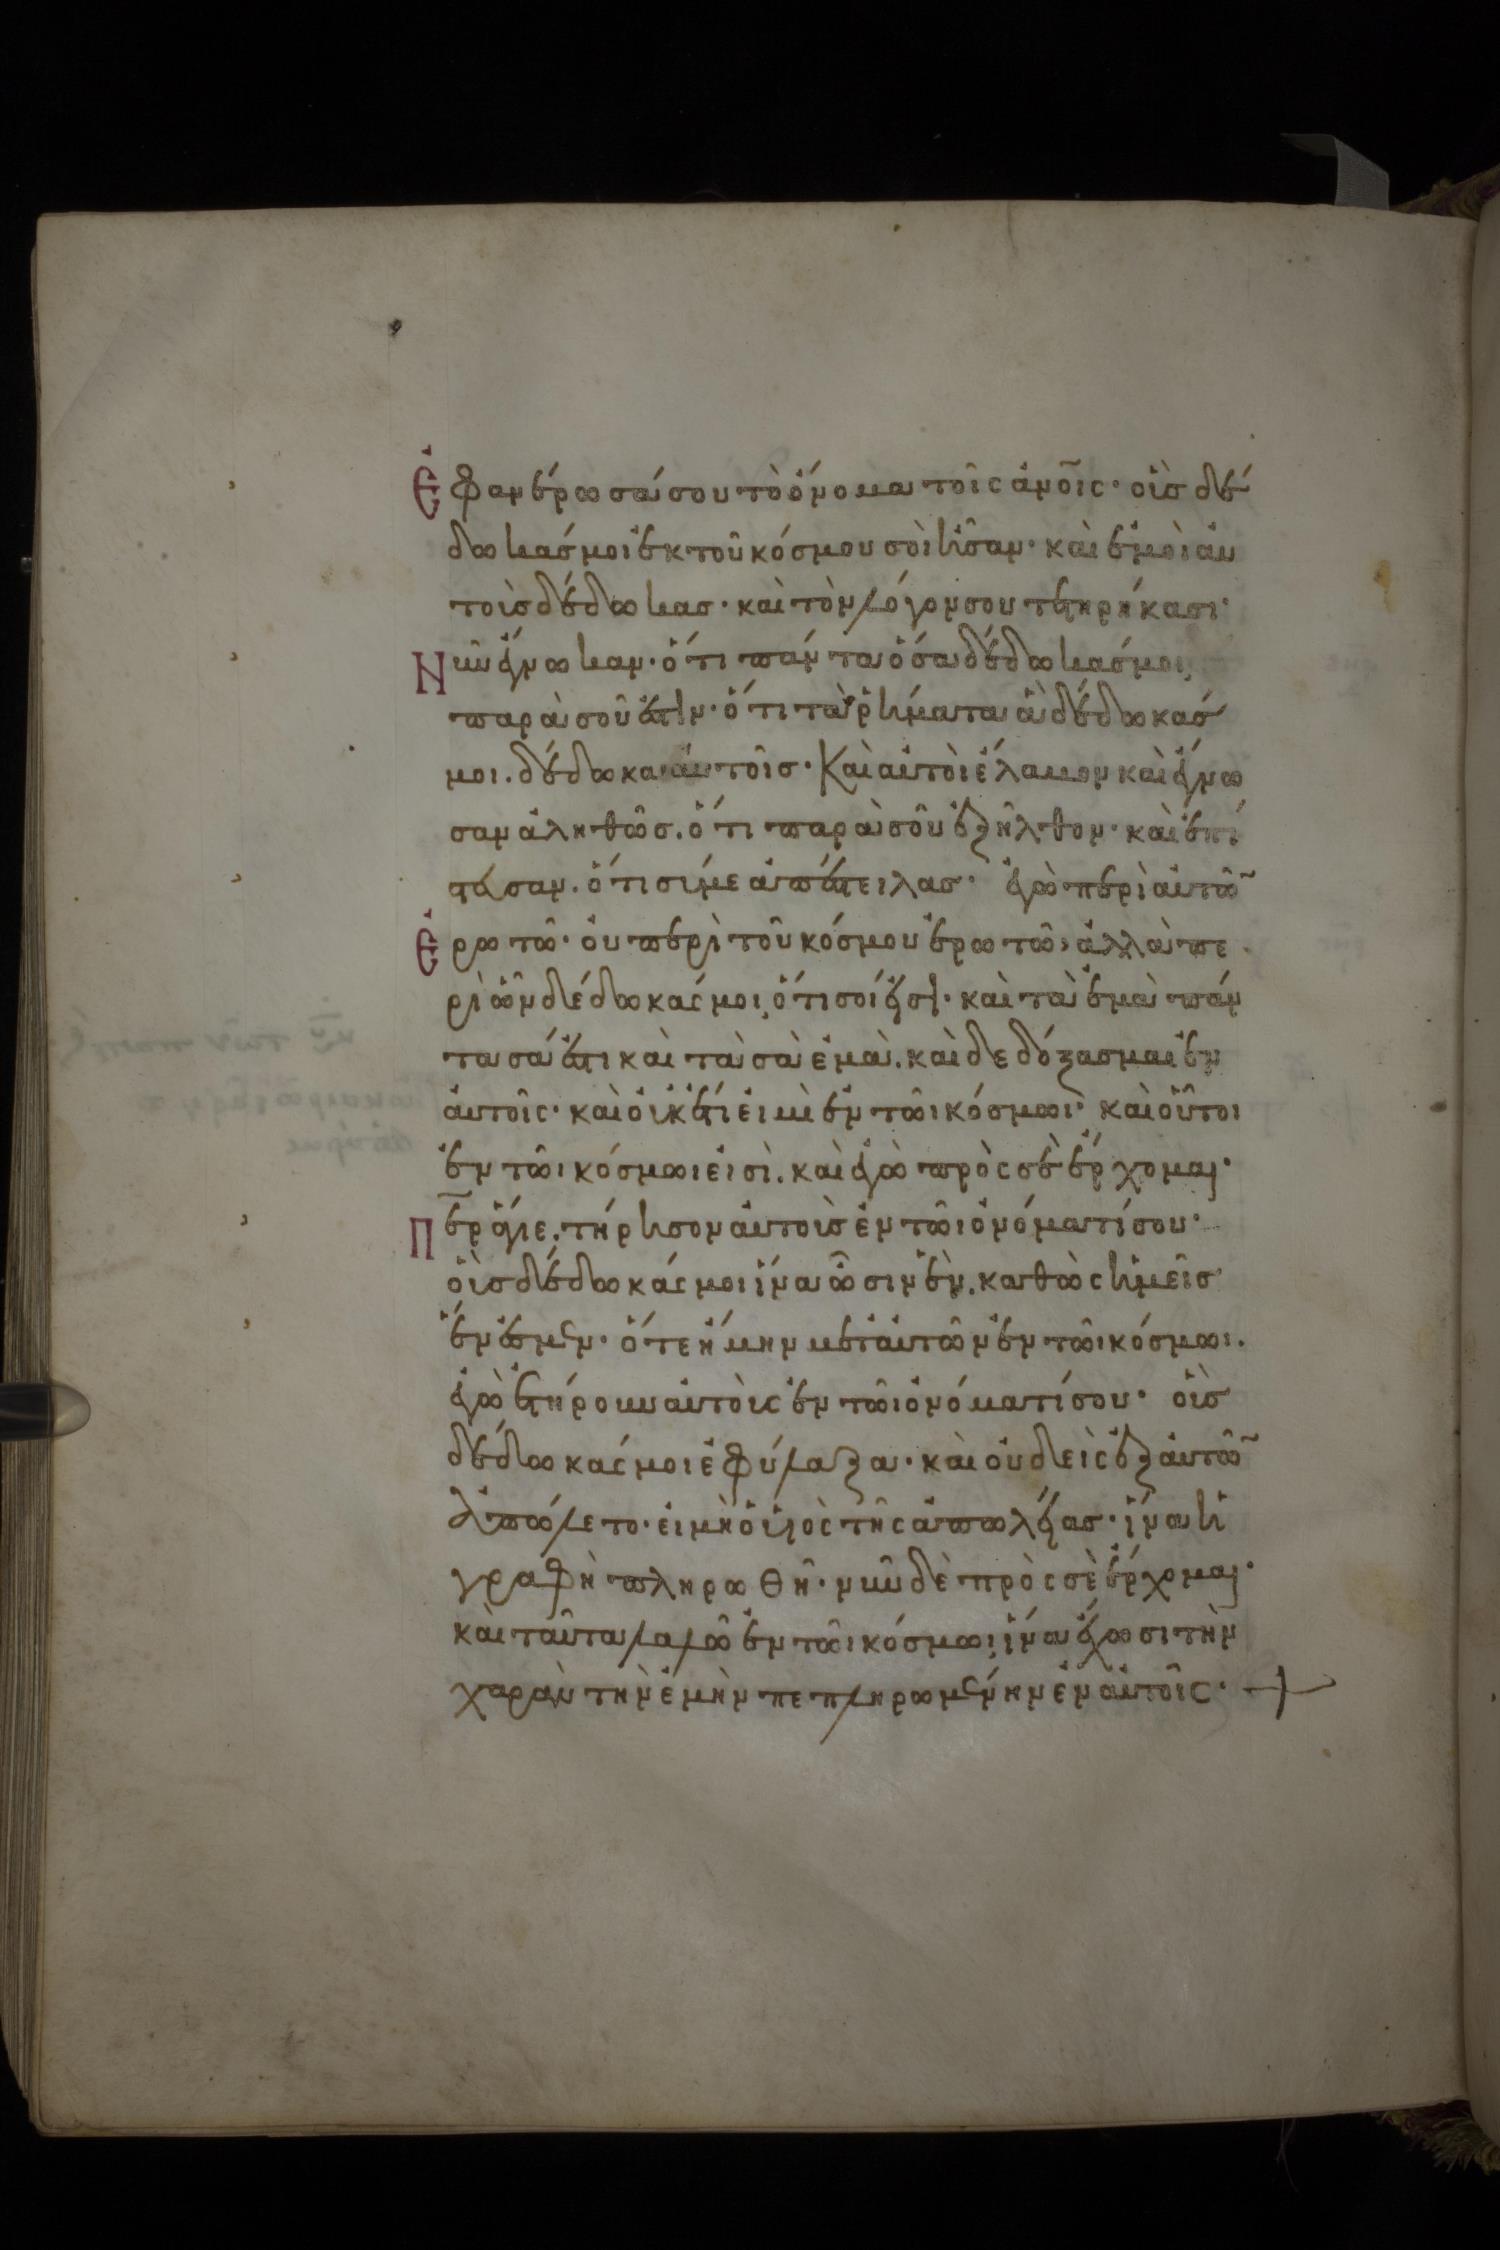 Ἐφανέρωσά σου τὸ ὄνομα τοῖς ἀν̅οις· οὓσ δέ
δωκάσ μοι ἐκ τοῦ κόσμου σοὶ ἦσαν· καὶ ἐμοὶ αὐ
τοὺσ δέδωκασ· καὶ τὸν λόγον σου τετηρήκασι·
Νῦν ἔγνωκαν· ὅτι πάντα ὅσα δέδωκάσ μοι,
παρὰ σοῦ ἐστὶν· ὅτι τὰ ῥήματα ἃ δέδωκάσ
μοι. δέδωκα αὐτοῖσ· Καὶ αὐτοὶ ἔλαβον καὶ ἔγνω
σαν ἀληθῶσ. ὅτι παρὰ σοῦ ἐξῆλθον· καὶ ἐπί
στευσαν. ὅτι σύ με ἀπέστειλασ· ἐγὼ περὶ αὐτῶ̅
Ἐρωτῶ· οὐ περὶ τοῦ κόσμου ἐρωτῶ, ἀλλὰ πε
ρὶ ὧν δέδωκάς μοι, ὅτι σοί εἰσι· καὶ τὰ ἐμὰ πάν
τα σά ἐστι καὶ τὰ σὰ ἐμὰ. καὶ δεδόξασμαι ἐν
αὐτοῖς· καὶ οὐκέτι εἰμὶ ἐν τῶι κόσμωι· καὶ οὗτοι
ἐν τῶι κόσμωι εἰσὶ. καὶ ἐγὼ πρὸς σὲ ἔρχομαι·
Π̅ερ ἅγιε. τήρησον αὐτοὺσ ἐν τῶι ὀνόματί σου·
οὓσ δέδωκάς μοι ἵνα ὦσιν ἓν. καθὼς ἡμεῖσ
ἕν ἐσμεν· ὅτε ἤμην μετ' αὐτῶν ἐν τῶι κόσμωι.
ἐγὼ ἐτήρουν αὐτοὺς ἐν τῶι ὀνόματί σου· οὓσ
δέδωκάς μοι ἐφύλαξα· καὶ οὐδεὶς ἐξ αὐτῶ̅
ἀπώλετο· εἰ μὴ ὁ υἱὸς τῆς ἀπωλείασ· ἵνα ἡ
γραφὴ πληρωθῆ· νῦν δὲ πρὸς σὲ ἔρχομαι·
καὶ ταῦτα λαλῶ ἐν τῶι κόσμωι, ἵνα ἔχωσι τὴν
χαρὰν τὴν ἐμὴν πεπληρωμένην ἐν αὐτοῖς·